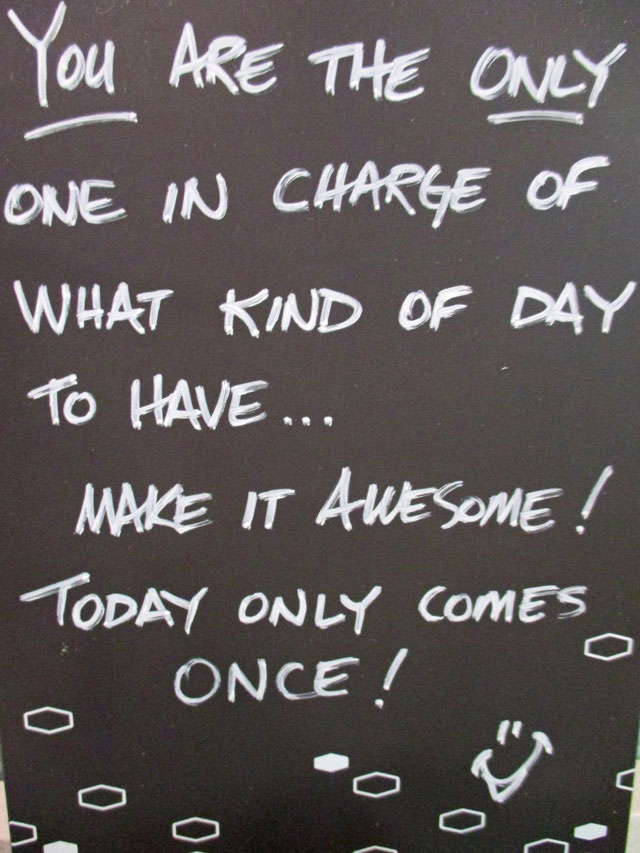 YOU ARE THE ONLY
ONE IN CHARGE OF
WHAT KIND OF DAY
TO HAVE...
MAKE IT AWESOME!
TODAY ONLY COMES
ONCE!